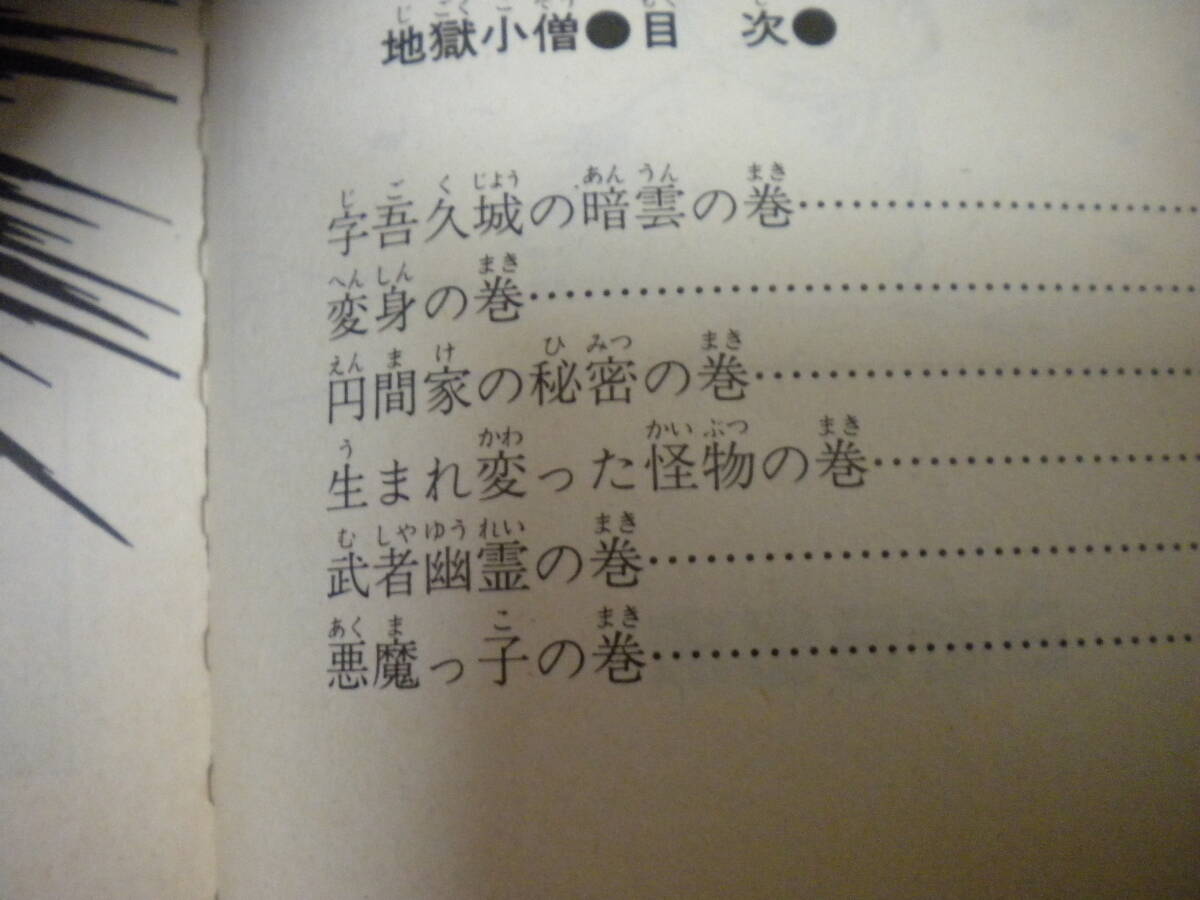 地獄小僧●目 次●
字吾久城の暗雲の巻
変身の巻
円間家の秘密の巻
生まれ変った怪物の巻
武者幽霊の巻
悪魔っ子の巻